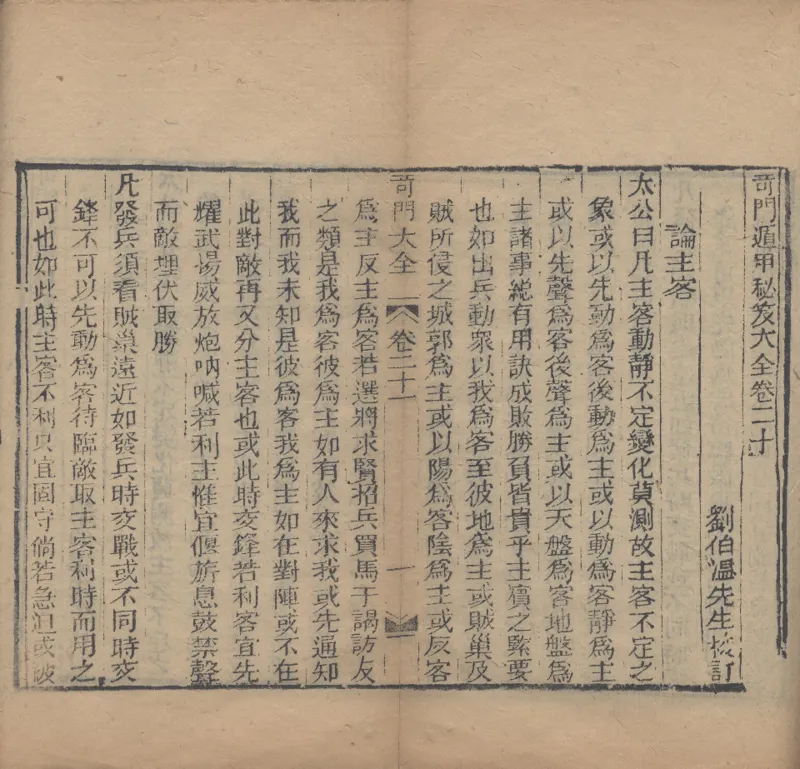 奇門遁甲秘笈大全卷二十
劉伯溫先生校訂
論主客
太公曰凡主客動靜不定變化莫測故主客不定之
象或以先動爲客後動爲主或以動爲客靜爲主
或以先聲爲客後聲爲主或以天盤爲客地盤爲
主諸事總有用訣成敗勝負皆貴乎主賓之緊要
也如出兵動衆以我爲客至彼地爲主或賊巢及
賊所侵之城郭爲主或以陽爲客陰爲主或反客
奇門大全 卷二十一 一
爲主反主爲客若選將求賢招兵買馬干謁訪友
之類是我爲客彼爲主如有人來求我或先通知
我而我未知是彼爲客我爲主如在對陣或不在
此對敵再又分主客也或此時交鋒若利客宜先
耀武揚威放炮吶喊若利主惟宜偃旂息鼓禁聲
而敵埋伏取勝
凡發兵須看賊巢遠近如發兵時交戰或不同時交
鋒不可以先動爲客待臨敵取主客利時而用之
可也如此時主客不利只宜固守倘若急迫或彼